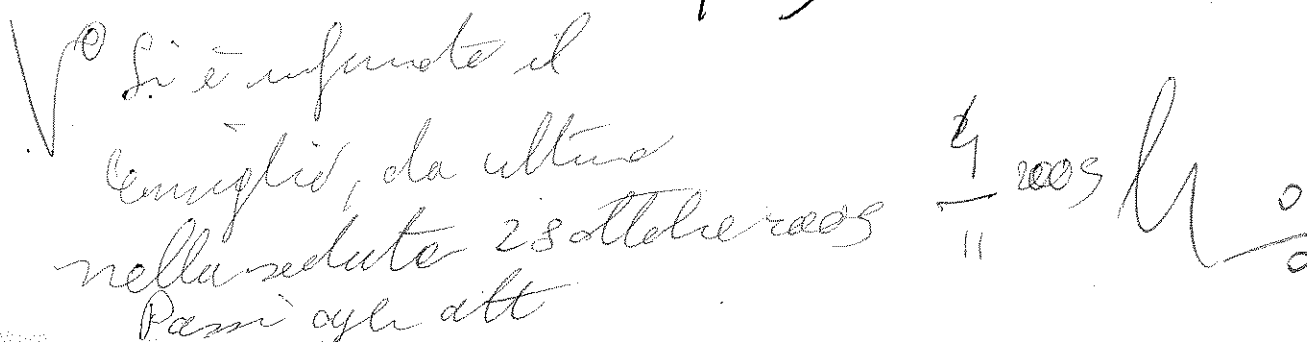 V° Si è informato il
consiglio, da ultimo
nella seduta 28 ottobre 2009
Passi agli atti
4/11 2009